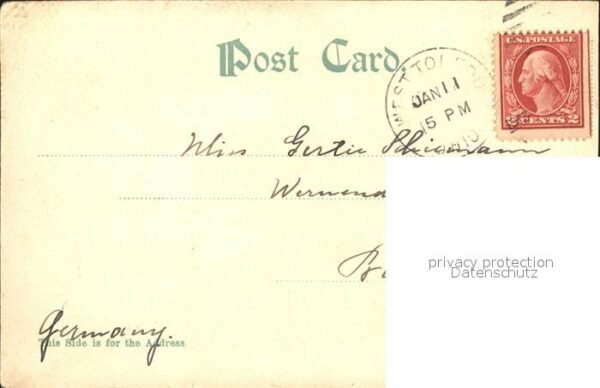 Post Card
WEST TOLEDO
JAN 11
15 PM
OHIO
U.S. POSTAGE
2 CENTS 2
Miss Gertie
privacy protection
Datenschutz
Germany.
This Side is for the Address